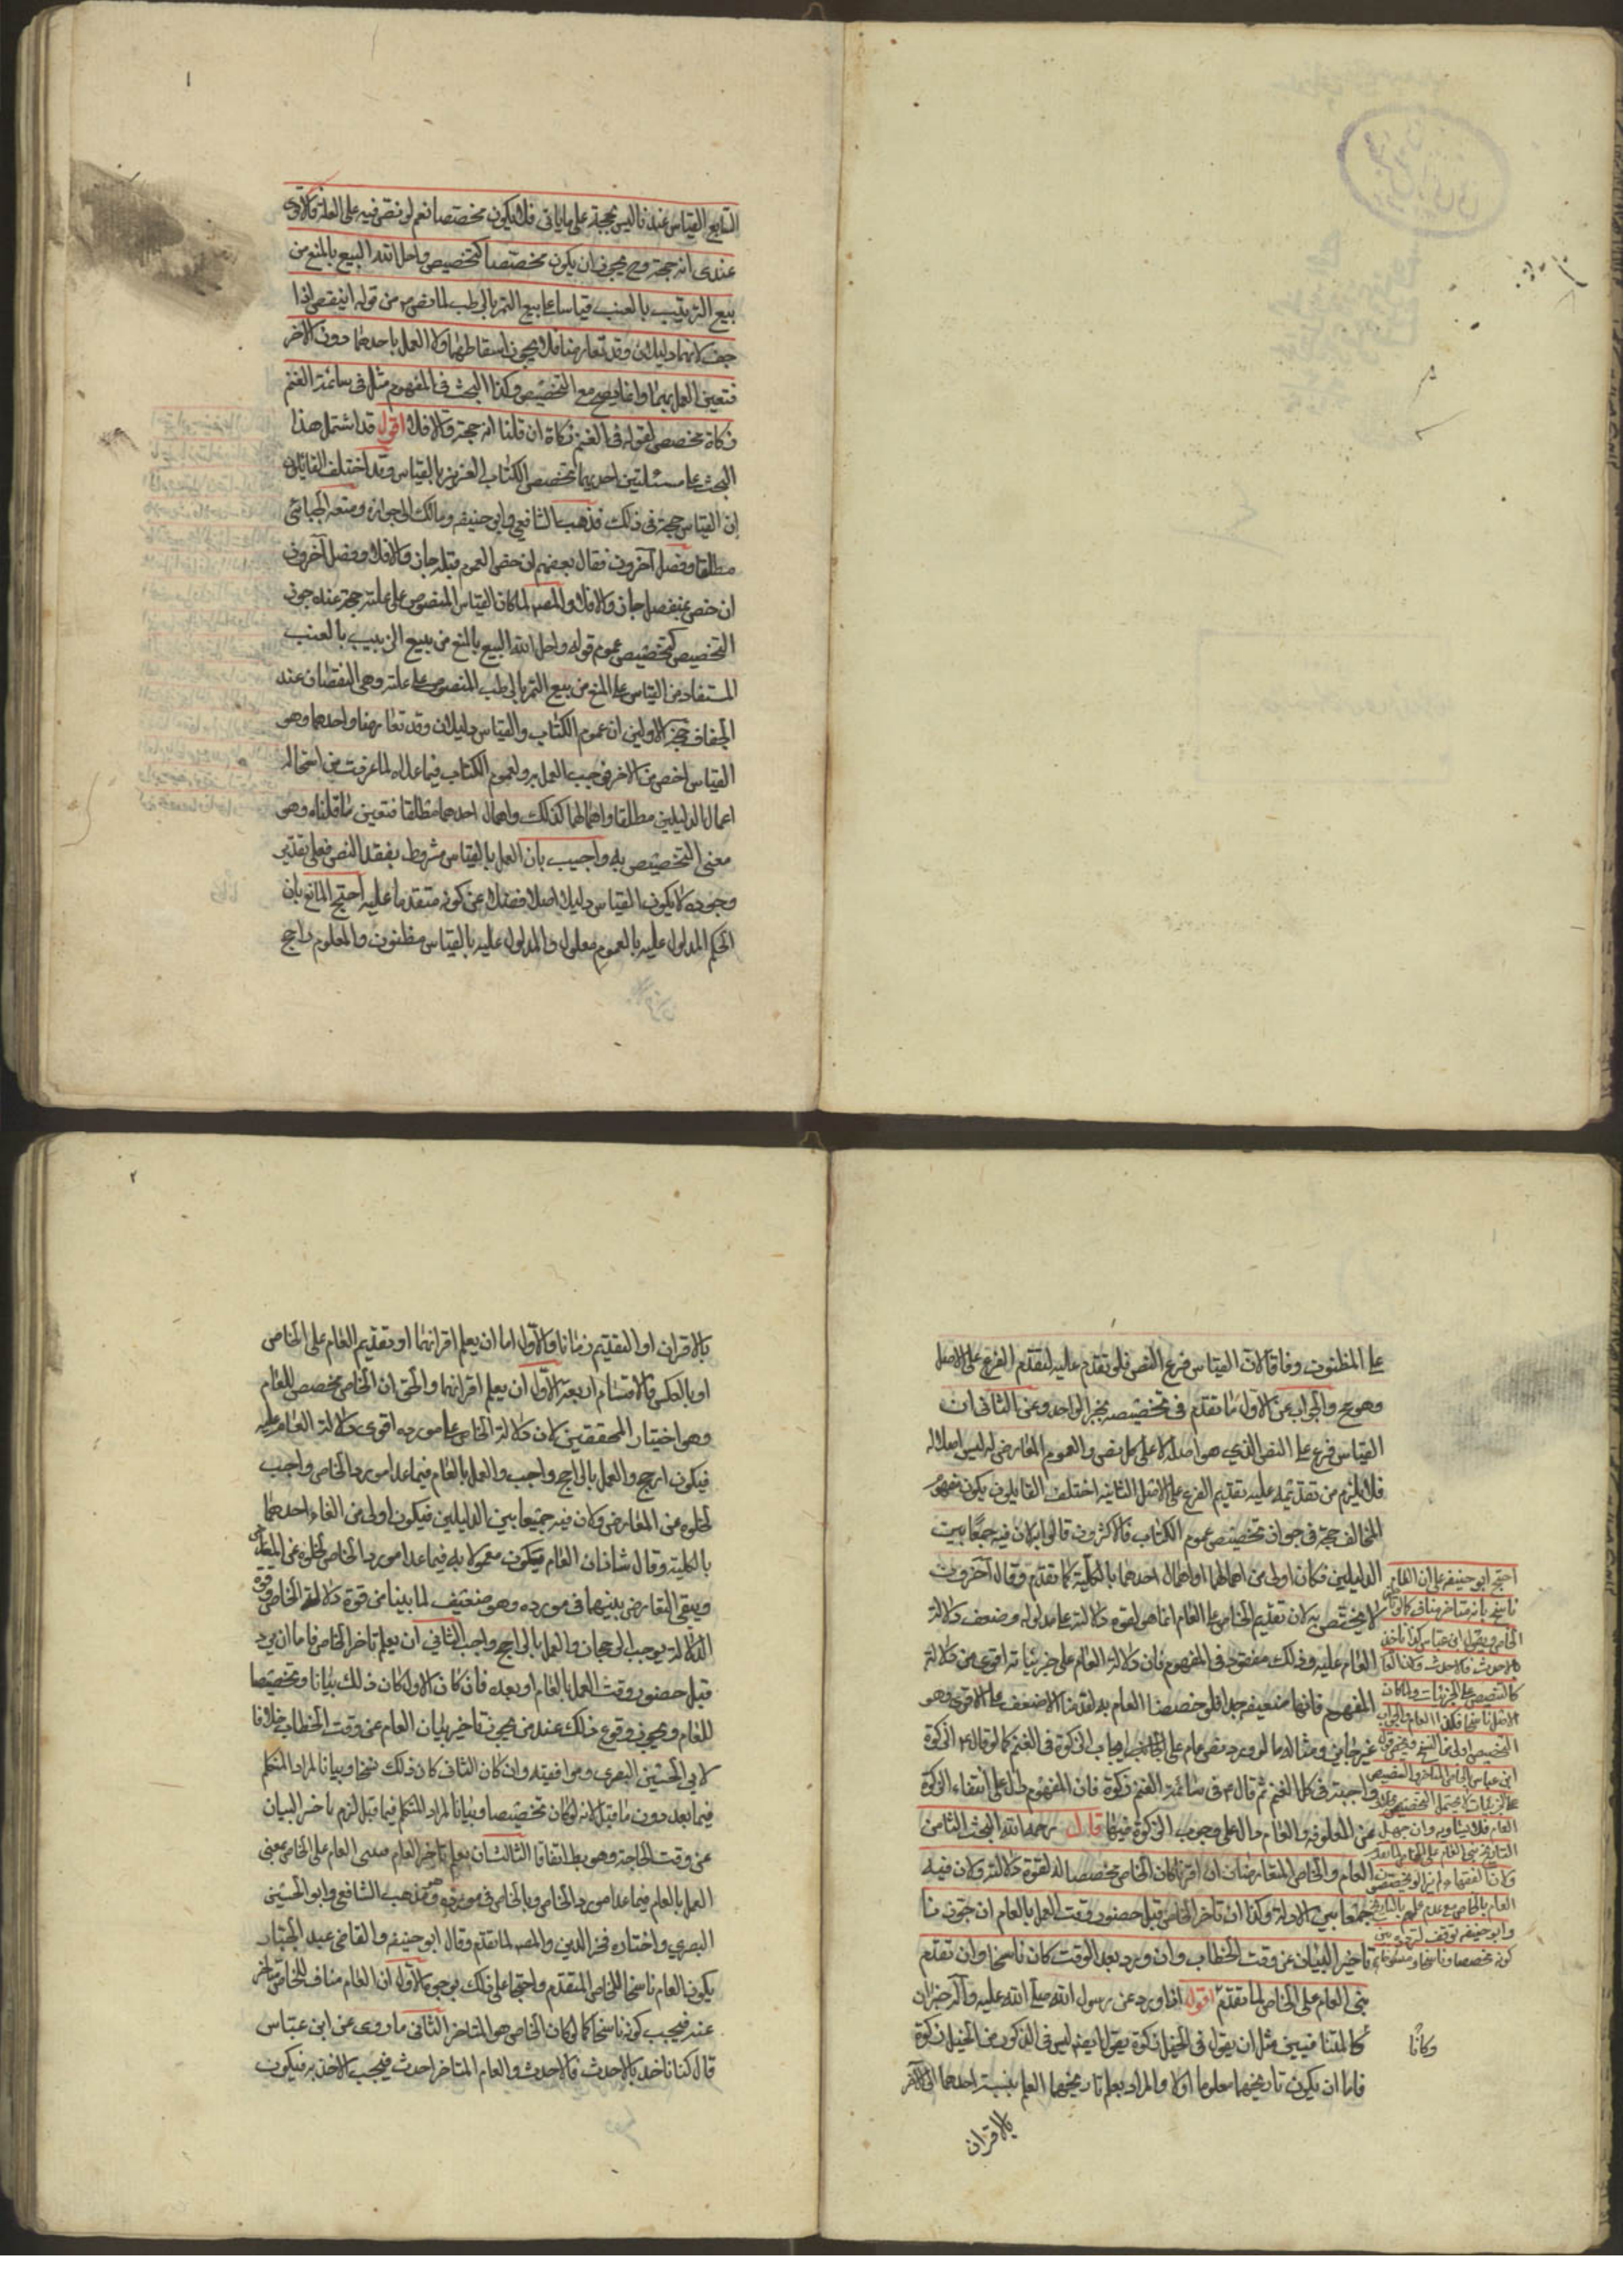 السابع القياس عندنا ليس بحجة على ما ياتى فلا يكون مخصصا نعم لو نص فيه على العلة فالاقوى
عندى انه حجة وح يجوز ان يكون مخصصا كتخصيص واحل الله البيع بالمنع من
بيع الزبيب بالعنب قياسا على بيع التمر بالرطب لما نص من قوله اينقص اذا
جف لانهما دليلان وقد تعارضا فلا يجوز اسقاطهما ولا العمل باحدهما دون الاخر
فتعين العمل بهما وانما يصح مع التخصيص وكذا البحث فى المفهوم مثل فى سائمة الغنم
زكاة مخصص لقوله فى الغنم زكاة ان قلنا انه حجة والا فلا اقول قد اشتمل هذا
البحث على مسئلتين احديهما تخصيص الكتاب العزيز بالقياس وقد اختلف القائلون
ان القياس حجة فى ذلك فذهب الشافعي وابو حنيفه ومالك الى جوازه ومنعه الجبائى
مطلقا وفصل آخرون فقال بعضهم ان خص العموم قبله جاز والا فلا وفصل آخرون
ان خص بمنفصل جاز والا فلا والمصه لما كان القياس المنصوص على علته حجة عنده جوز
التخصيص كتخصيص عموم قوله واحل الله البيع بالمنع من بيع الزبيب بالعنب
المستفاد من القياس على المنع من بيع التمر بالرطب المنصوص على علته وهى النقصان عند
الجفاف حجة الاولين ان عموم الكتاب والقياس دليلان وقد تعارضا واحدهما وهو
القياس اخص من الاخر فيجب العمل به ولعموم الكتاب فيما عداه لما عرفت من استحالة
اعمال الدليلين مطلقا واهمالهما كذلك واهمال احدهما مطلقا فتعين ما قلناه وهو
معنى التخصيص به واجيب بان العمل بالقياس مشروط بفقد النص فعلى تقدير
وجوده لا يكون القياس دليلا اصلا فضلا عن كونه متقدما عليه احتج المانع بان
الحكم المدلول عليه بالعموم معلول والمدلول عليه بالقياس مظنون والمعلوم راجح
على المظنون وفاقا لان القياس فرع النص فلو تقدم عليه لتقدم الفرع على الاصل
وهو مح والجواب عن الاول ما تقدم فى تخصيصه بخبر الواحد وعن الثانى ان
القياس فرع على النص الذى هو اصله لا على كل نص والعموم المعارض له ليس اصلا له
فلا يلزم من تقديمه عليه تقديم الفرع على الاصل الثانية اختلف القايلون بكون مفهوم
المخالف حجة فى جواز تخصيص عموم الكتاب فالاكثرون قالوا به لان فيه جمعا بين
الدليلين فكان اولى من اهمالهما او اهمال احدهما بالكلية كما تقدم وقال آخرون
لا يخصص به لان تقديم الخاص على العام انما هو لقوة دلالته على مدلوله وضعف دلالة
العام عليه وذلك مفقود فى المفهوم فان دلالة العام على جزئياته اقوى من دلالة
المفهوم فانها ضعيفة جدا فلو خصصنا العام به لقدمنا الاضعف على الاقوى وهو
غير جايز ومثاله ما لو ورد نص عام على ايجاب الزكوة فى الغنم كما لو قال ع الزكوة
واجبة فى كل الغنم ثم قال ع فى سائمة الغنم زكوة فان المفهوم دال على انتفاء الزكوة
عن المعلوفة والعام دال على وجوب الزكوة فيها قال رحمه الله البحث الثامن
العام والخاص المتعارضان ان اقترنا كان الخاص مخصصا له لقوة دلالته ولان فيه
جمعا بين الادلة وكذا ان تأخر الخاص قبل حضور وقت العمل بالعام ان جوزنا
تأخير البيان عن وقت الخطاب وان ورد بعد الوقت كان ناسخا وان تقدم
بنى العام على الخاص لما تقدم اقول اذا ورد عن رسول الله صلى الله عليه وآله خبران
كالمتنافيين مثل ان يقول فى الخيل زكوة يقول ايضا ليس فى الذكور من الخيل زكوة
فاما ان يكون تاريخهما معلوما اولا والمراد بعلم تاريخهما العلم بنسبة احدهما الى الآخر
بالاقران
احتج ابو حنيفه على ان العام
ناسخ بانه متاخر مناف كالو
الخاص وبقول ابن عباس كنا ناخذ
بالاحدث فالاحدث ولان العام
كالتنصيص على الجزئيات
وكانا
بالاقران او التقديم زمانا والاول اما ان يعلم اقرانهما او تقديم العام على الخاص
او بالعكس فالاقسام اربعة الاول ان يعلم اقرانهما والحق ان الخاص مخصص للعام
وهو اختيار المحققين لان دلالة الخاص على مورده اقوى دلالة العام عليه
فيكون ارجح والعمل بالراجح واجب والعمل بالعام فيما عدا مورد الخاص واجب
لخلوه عن المعارض ولان فيه جمعا بين الدليلين فيكون اولى من الغاء احدهما
بالكلية وقال شاذان العام يكون معمولا به فيما عدا مورد الخاص لخلوه عن المعارض
ويبقى التعارض بينهما فى مورده وهو ضعيف لما بينا من قوة دلالة الخاص وقوة
الدلالة يوجب الرجحان والعمل بالراجح واجب الثاني ان يعلم تاخر الخاص فاما ان يرد
قبل حضور وقت العمل بالعام او بعده فان كان الاول كان ذلك بيانا وتخصيصا
للعام ويجوز وقوع ذلك عند من يجوز تاخير بيان العام عن وقت الخطاب خلافا
لابى الحسين البصرى وموافقيه وان كان الثانى كان ذلك نسخا وبيانا لمراد المتكلم
فيما بعد دون ما قبل لانه لو كان تخصيصا وبيانا لمراد المتكلم فيما قبل لزم تاخير البيان
عن وقت الحاجة وهو بط اتفاقا الثالث ان يعلم تاخر العام فيبنى العام على الخاص بمعنى
العمل بالعام فيما عدا مورد الخاص وبالخاص فى مورده وهو مذهب الشافعي وابو الحسين
البصري واختاره فخر الدين والمصه لما تقدم وقال ابو حنيفه والقاضى عبد الجبار
يكون العام ناسخا للخاص المتقدم واحتجا على ذلك بوجوه الاول ان العام مناف للخاص متاخر
عنه فيجب كونه ناسخا كما لو كان الخاص هو المتاخر الثانى ما روى عن ابن عباس
قال كنا ناخذ بالاحدث فالاحدث والعام المتاخر احدث فيجب الاخذ به فيكون